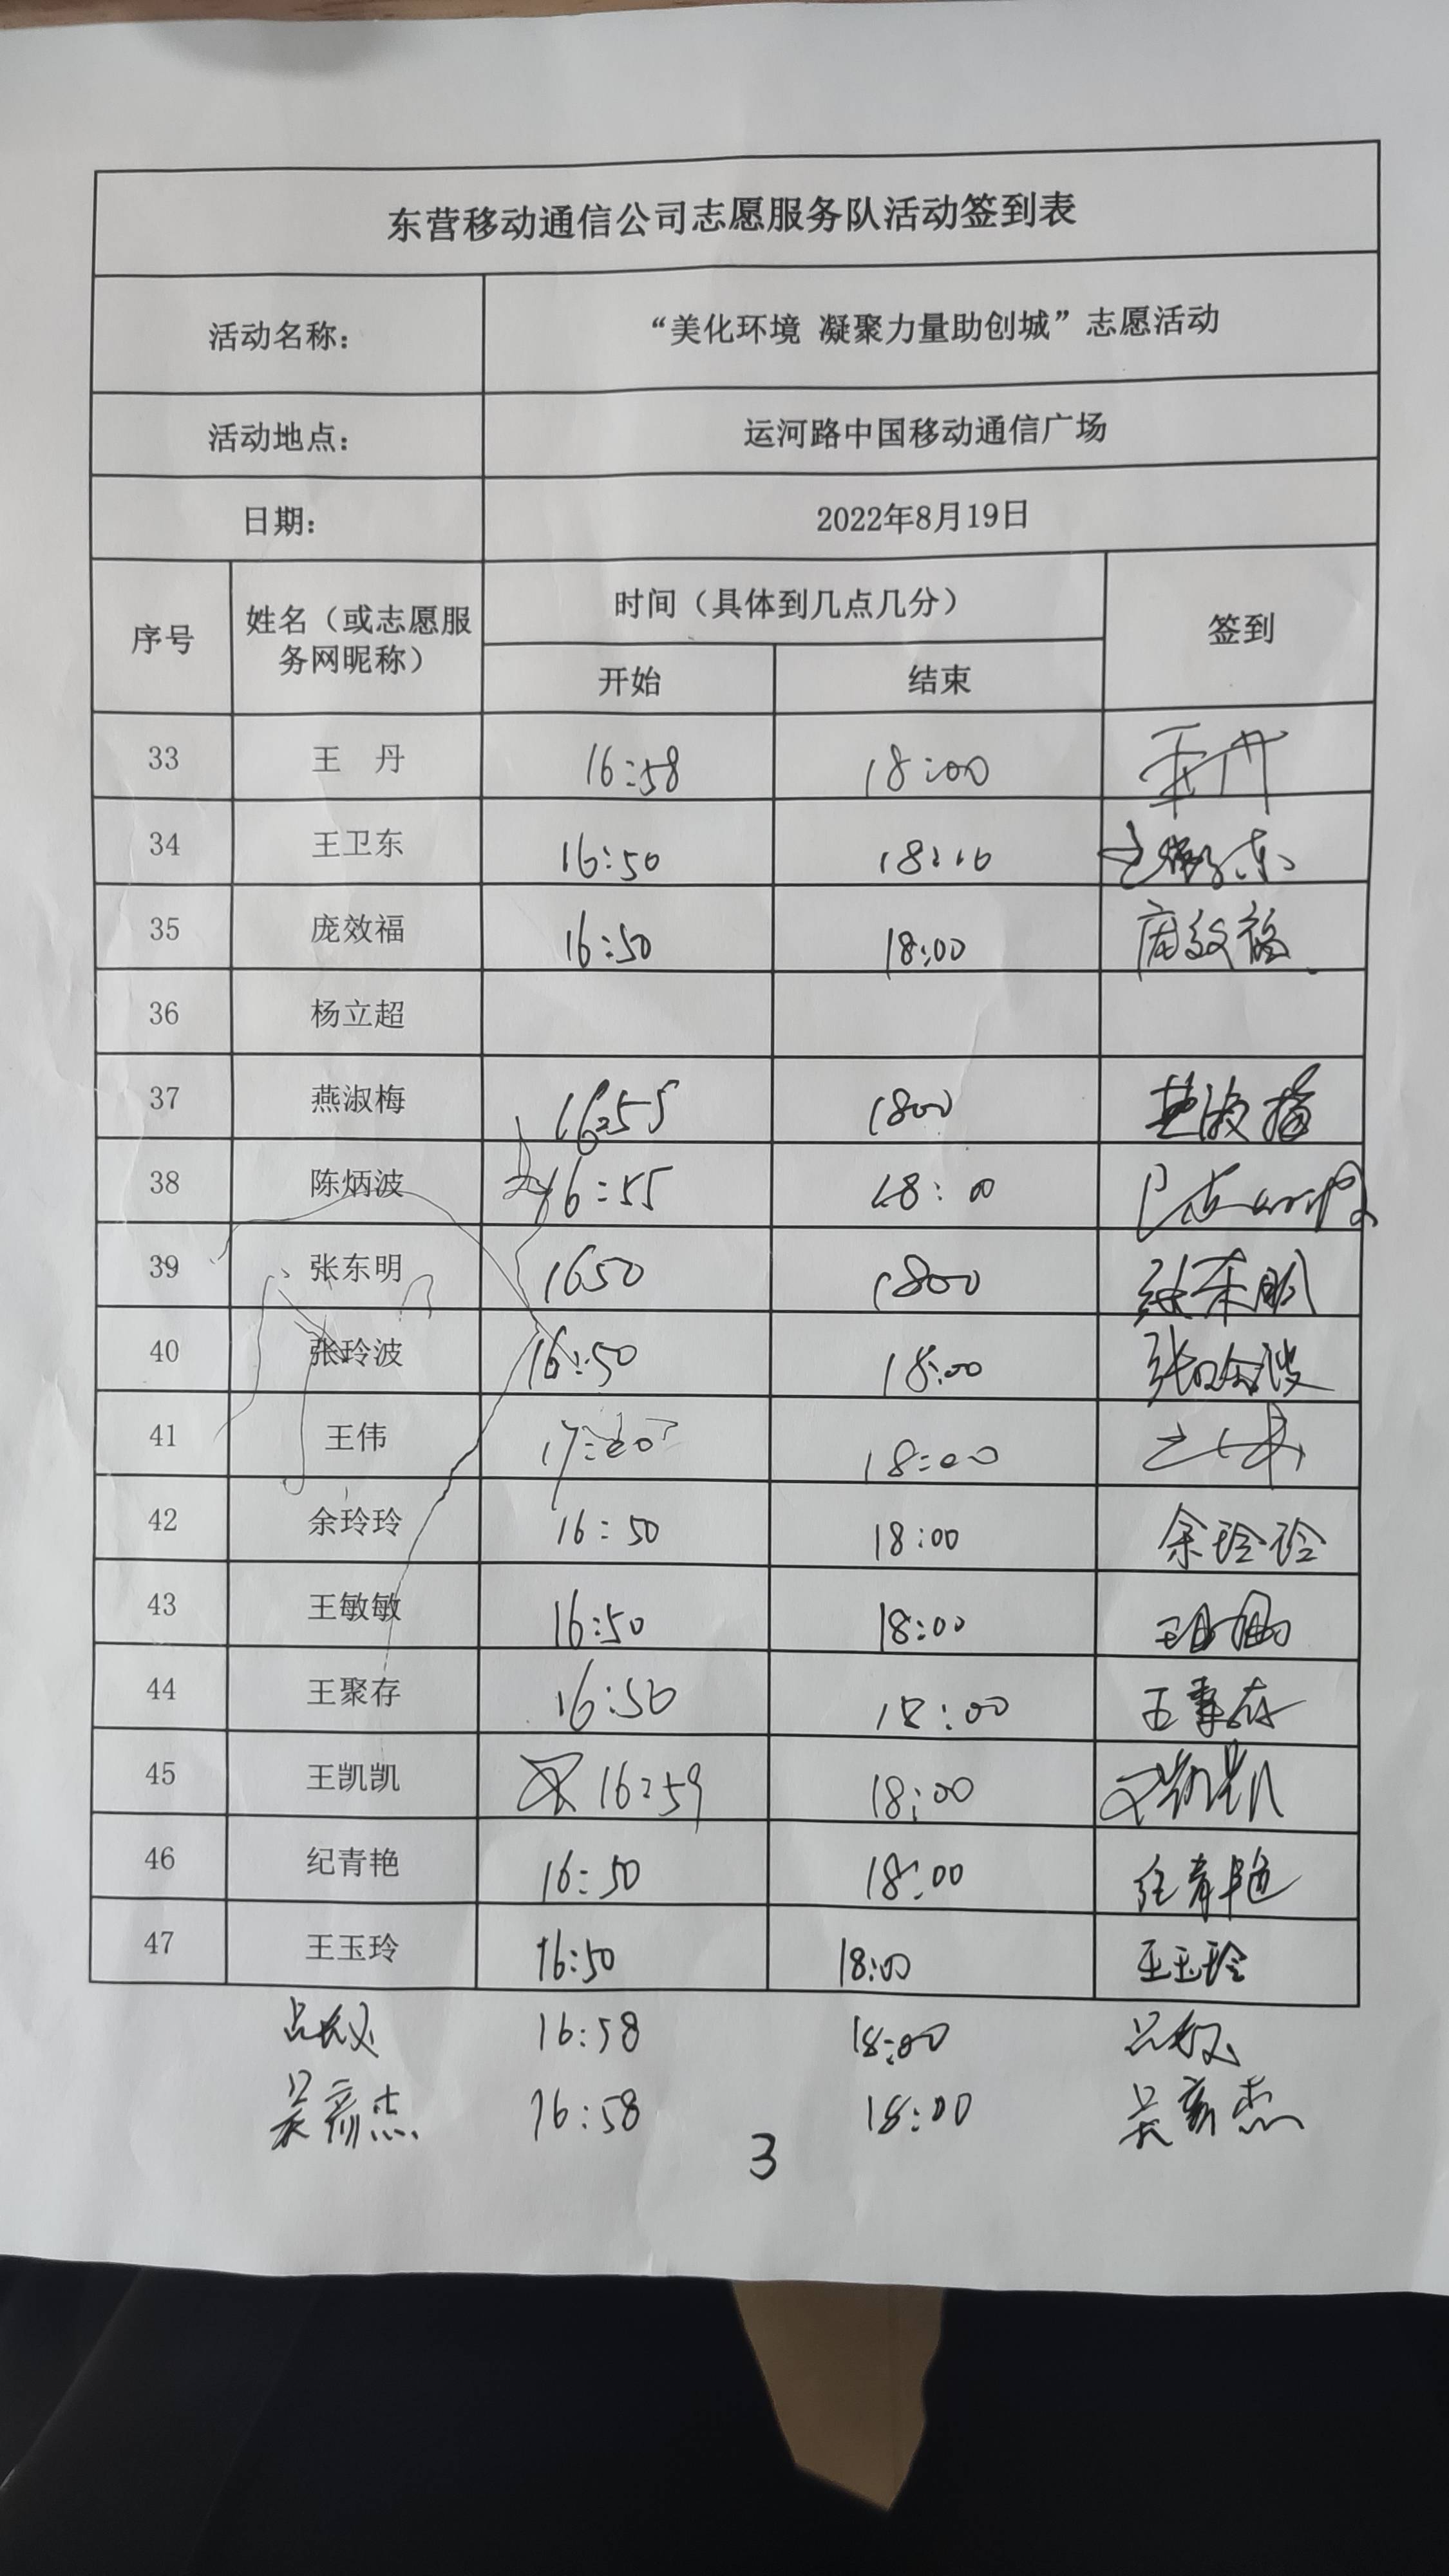 东营移动通信公司志愿服务队活动签到表
活动名称： “美化环境 凝聚力量助创城”志愿活动
活动地点： 运河路中国移动通信广场
日期： 2022年8月19日
序号 姓名（或志愿服务网昵称） 时间（具体到几点几分） 签到
开始 结束
33 王 丹 16:58 18:00 王丹
34 王卫东 16:50 18:10 王卫东
35 庞效福 16:50 18:00 庞效福
36 杨立超
37 燕淑梅 16:55 1800 燕淑梅
38 陈炳波 16:55 18:00
39 张东明 1650 1800 张东明
40 张玲波 16:50 18:00 张玲波
41 王伟 17:00 18:00 王伟
42 余玲玲 16:50 18:00 余玲玲
43 王敏敏 16:50 18:00
44 王聚存 16:50 18:00 王聚存
45 王凯凯 16:59 18:00 王凯凯
46 纪青艳 16:50 18:00 纪青艳
47 王玉玲 16:50 18:00 王玉玲
16:58 18:00
吴彦杰 16:58 18:00 吴彦杰
3